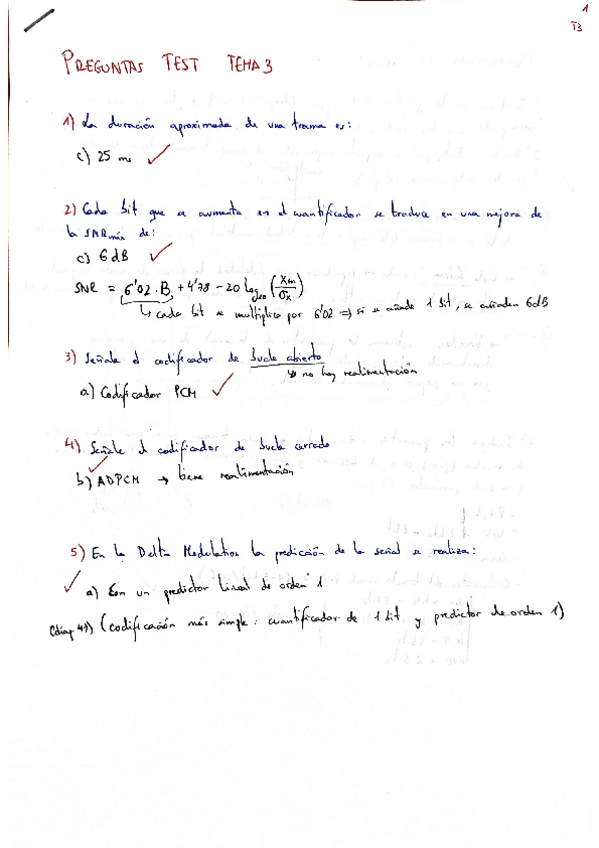 1
T3
PREGUNTAS TEST TEMA 3
1) La duración aproximada de una trama es:
c) 25 ms
2) Cada bit que se aumenta en el cuantificador se traduce en una mejora de
la SNRmáx de:
c) 6dB
SNR = 6'02·B + 4'78 - 20 log (Xm/σx)
↳ cada bit se multiplica por 6'02 => si se añade 1 bit, se añaden 6dB
3) Señale el codificador de bucle abierto
↳ no hay realimentación
a) Codificador PCM
4) Señale el codificador de bucle cerrado
b) ADPCM → tiene realimentación
5) En la Delta Modulation la predicción de la señal se realiza:
a) Con un predictor lineal de orden 1
(diap 43) (codificación más simple: cuantificador de 1 bit y predictor de orden 1)